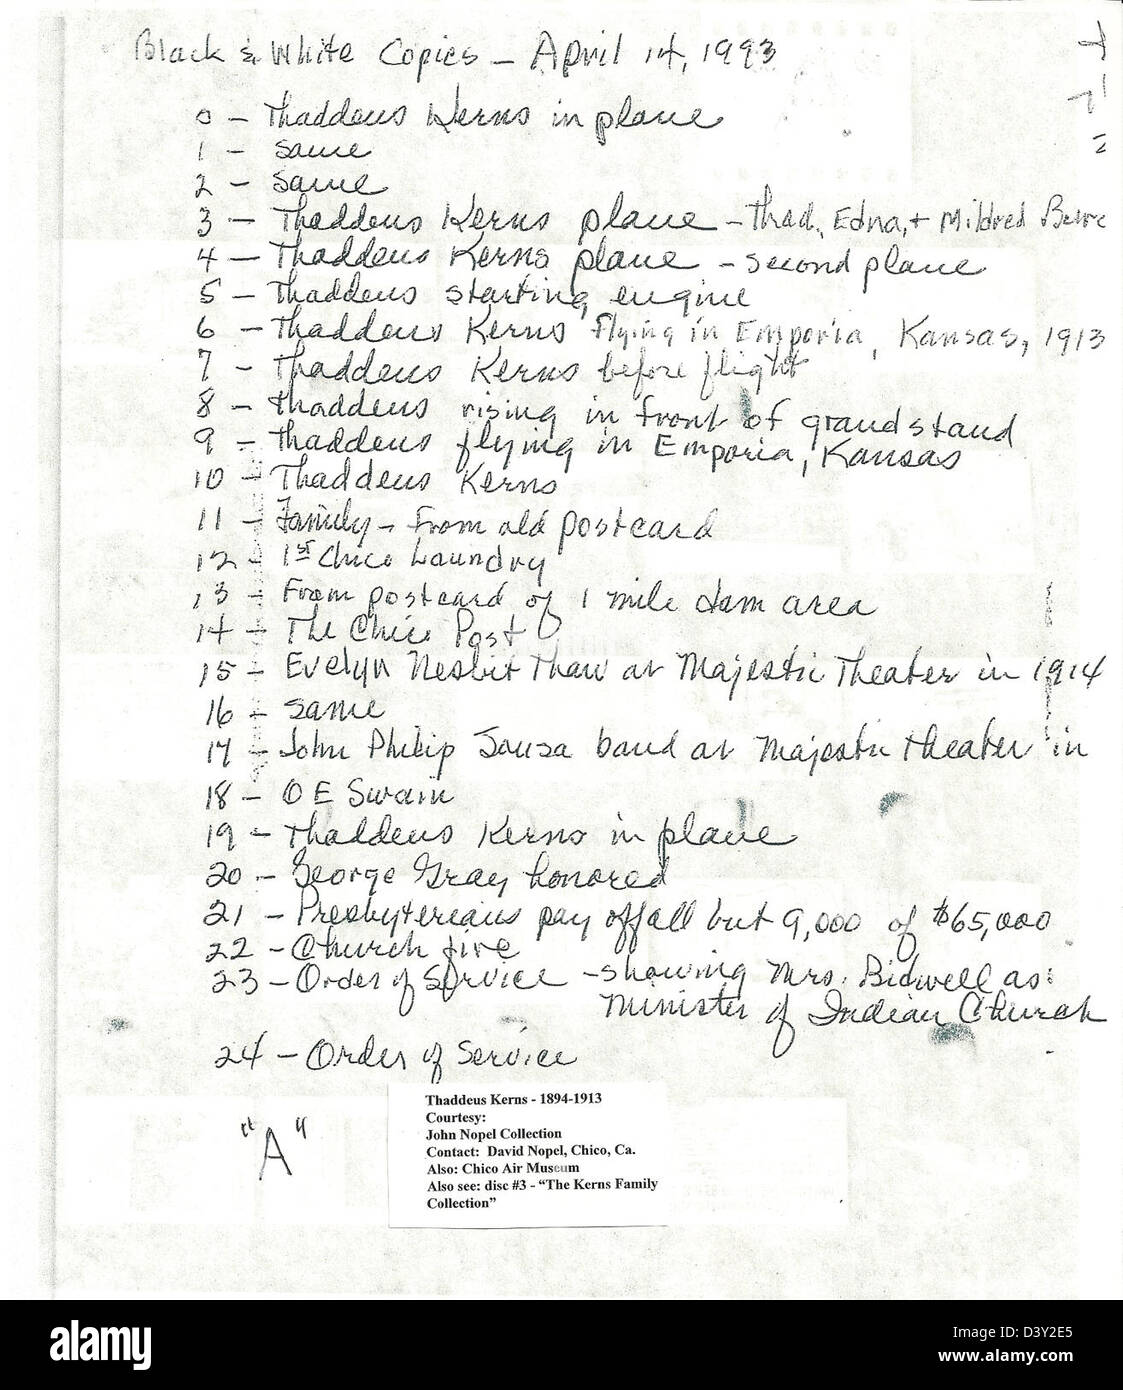 Black & White Copies - April 14, 1993
0 - Thaddeus Kerns in plane
1 - same
2 - same
3 - Thaddeus Kerns plane - Thad, Edna, + Mildred
4 - Thaddeus Kerns plane - second plane
5 - Thaddeus starting engine
6 - Thaddeus Kerns flying in Emporia, Kansas, 1913
7 - Thaddeus Kerns before flight
8 - Thaddeus rising in front of grandstand
9 - Thaddeus flying in Emporia, Kansas
10 - Thaddeus Kerns
11 - Family - From old postcard
12 - 1st Chico Laundry
13 - From postcard of 1 mile dam area
14 - The Chico Post
15 - Evelyn Nesbit Thaw at Majestic Theater in 1914
16 - same
17 - John Philip Sousa band at Majestic Theater in
18 - O E Swain
19 - Thaddeus Kerns in plane
20 - George Gray honored
21 - Presbyterians pay off all but 9,000 of $65,000
22 - Church fire
23 - Order of Service - showing Mrs. Bidwell as
Minister of Indian Church
24 - Order of Service
"A"
Thaddeus Kerns - 1894-1913
Courtesy:
John Nopel Collection
Contact: David Nopel, Chico, Ca.
Also: Chico Air Museum
Also see: disc #3 - “The Kerns Family
Collection”
alamy
Image ID: D3Y2E5
www.alamy.com